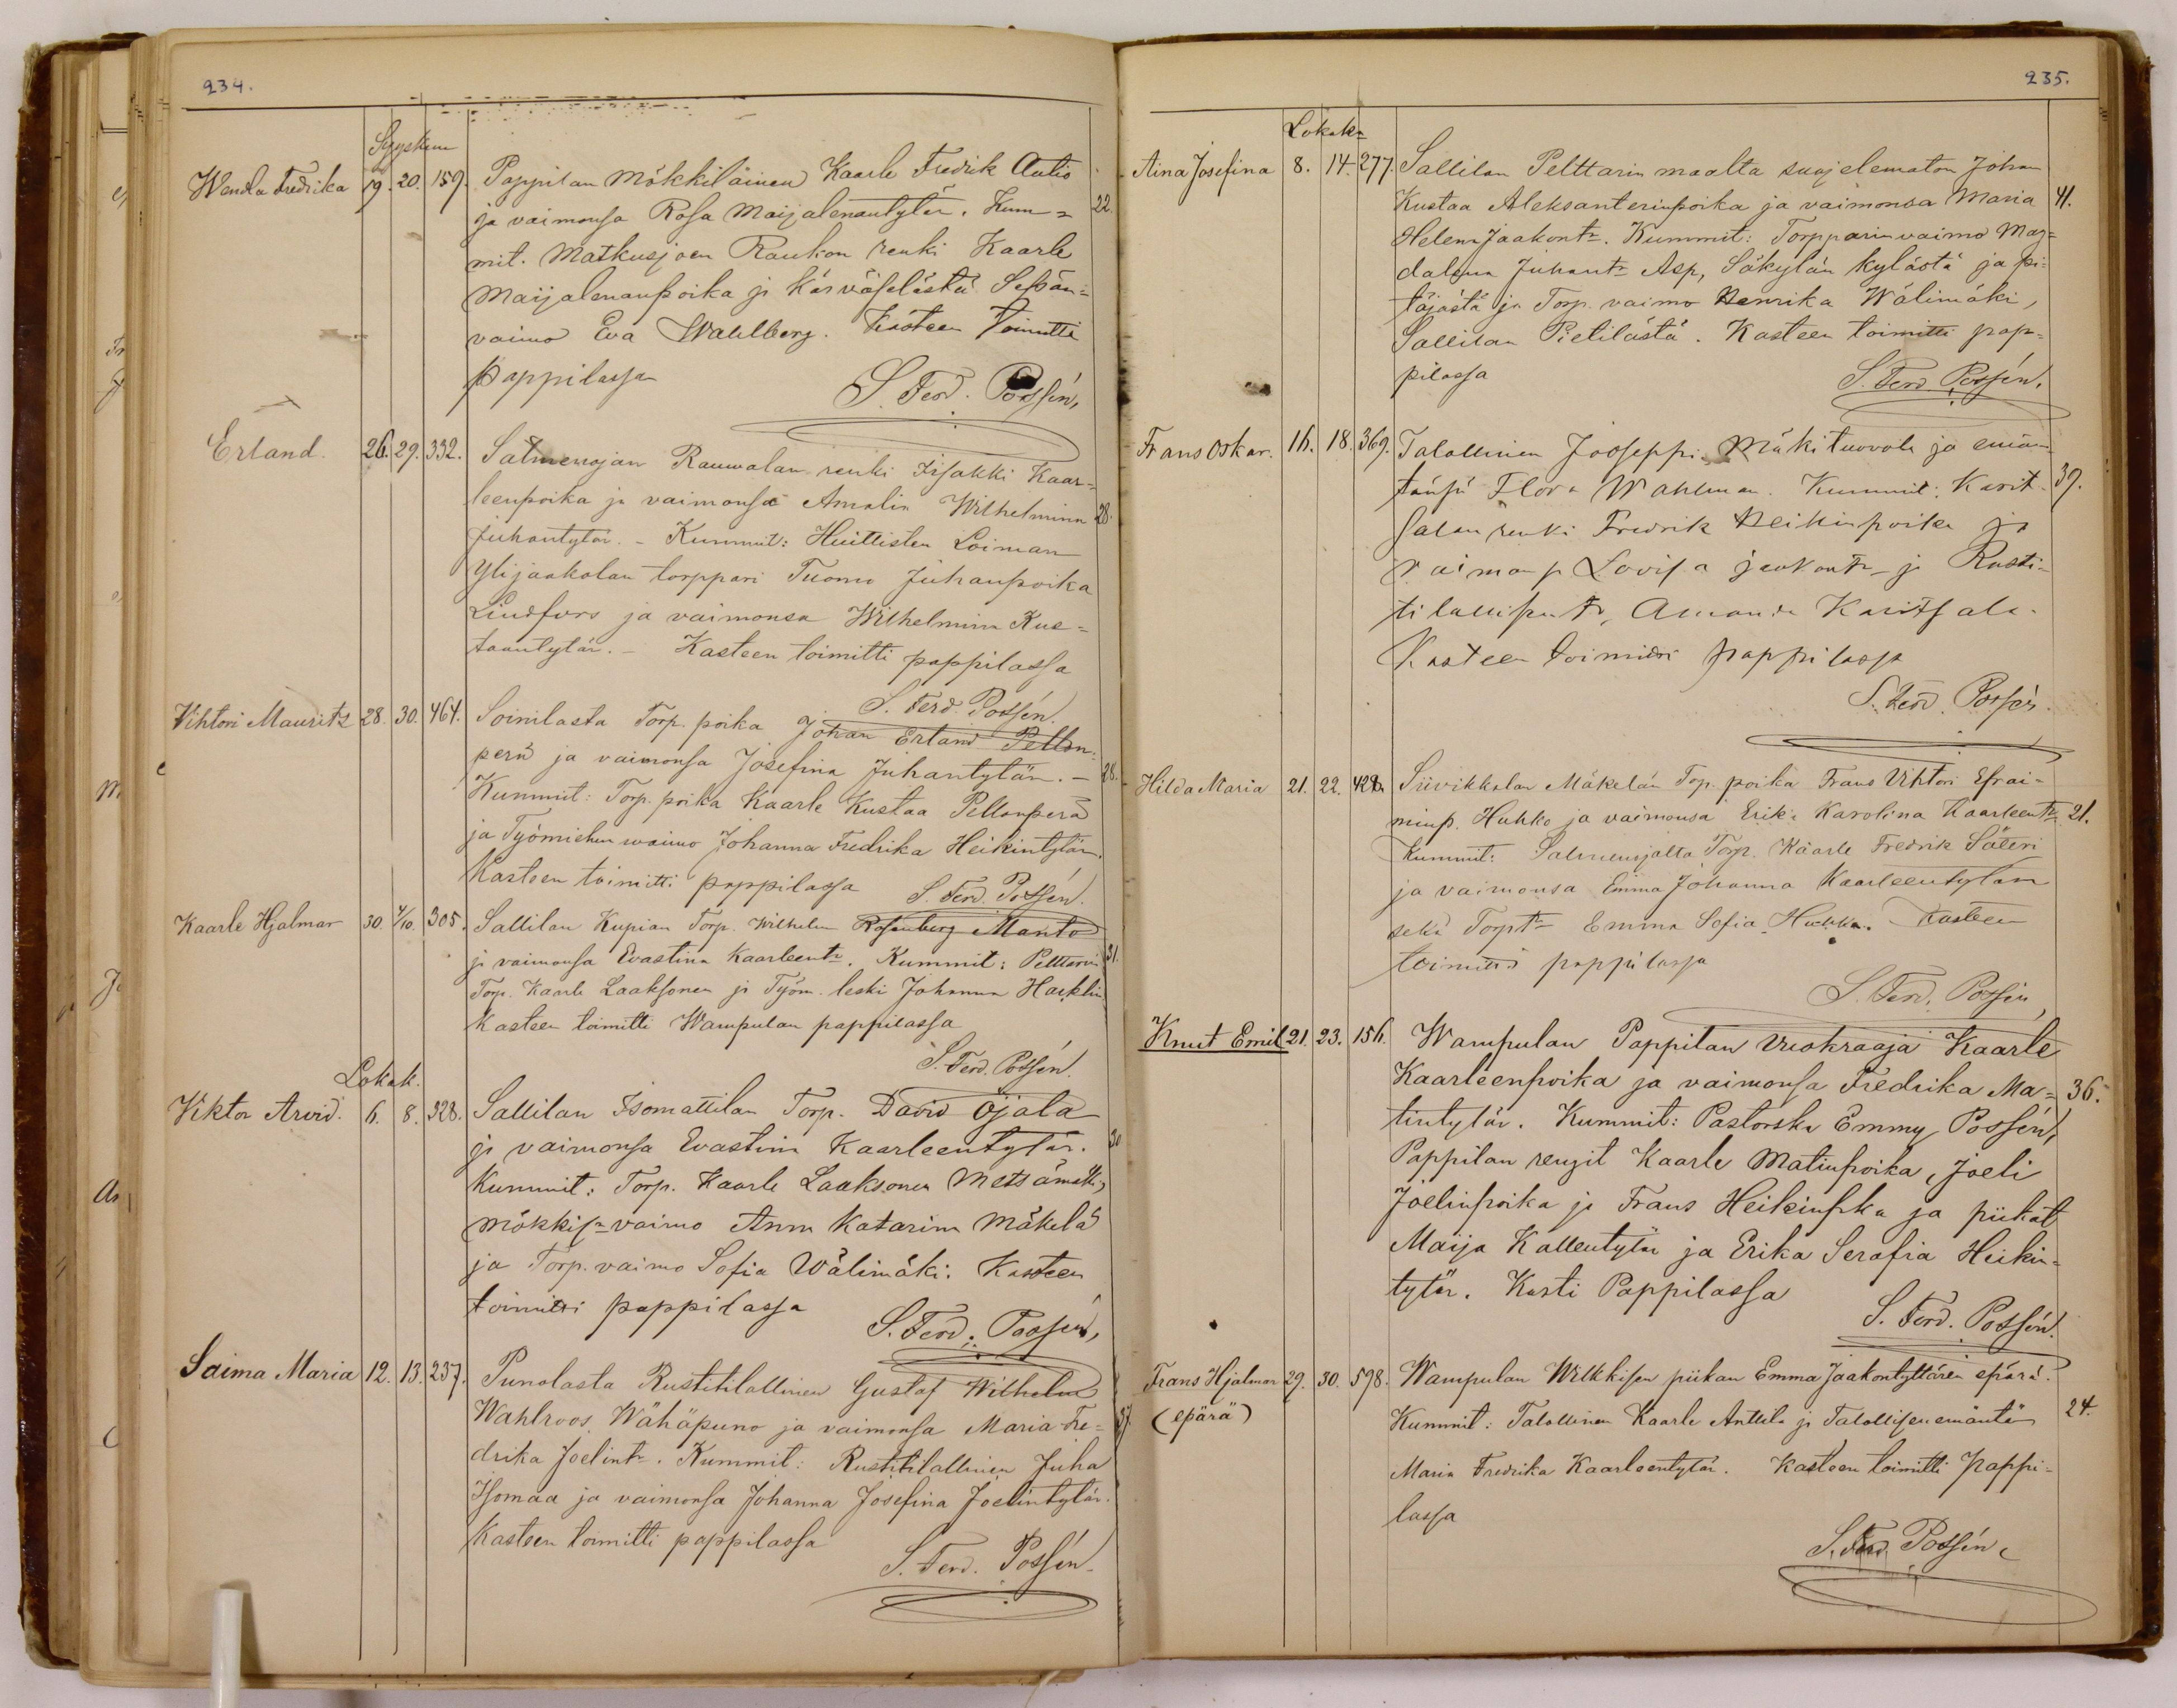 234.
Syyskuu
Wendla Fredrika 19. 20. 159. Pappilan Mökkiläinen Kaarle Fredrik Autio
ja vaimonsa Rosa Maijalenantytär. Kum= 22.
mit. Matkusjoen Raukon renki Kaarle
Maijalenanpoika ja
vaimo Eva Wahlberg. Kasteen toimitti
pappilassa
S. Ferd. Possén,
Erland. 26. 29. 332. Salmenojan Rauwolan renki Iisakki Kaar=
leenpoika ja vaimonsa Amalia Wilhelmina 28.
Juhantytär. – Kummit: Huittisten Loiman
Ylijaakolan torppari Tuomo Juhanpoika
Lindfors ja vaimonsa Wilhelmina Kus=
taantytär. – Kasteen toimitti pappilassa
S. Ferd. Possén.
Vihtori Mauritz 28. 30. 464. Soinilasta Torp. poika Johan Erland Pellon=
perä ja vaimonsa Josefina Juhantytär. – 28.
Kummit: Torp. poika Kaarle Kustaa Pellonperä
ja Työmiehen waimo Johanna Fredrika Heikintytär.
Kasteen toimitti pappilassa S. Ferd. Possén.
Kaarle Hjalmar 30. 4/10. 305. Sallilan Kupian Torp. Wilhelm Rosenberg Manto
ja vaimonsa Evastina Kaarleent=. Kummit: Pelttarin 31.
Torp. Kaarle Laaksonen ja Työm. leski Johanna Hacklin.
Kasteen toimitti Wampulan pappilassa
S. Ferd. Possén.
Lokak.
Viktor Arvid. 6. 8. 328. Sallilan Isomattilan Torp. David Ojala
ja vaimonsa Evastina Kaarleentytär. 30
Kummit: Torp. Kaarle Laaksonen Metsämatti,
Mökkis= vaimo Anna Katarina Mäkelä
ja Torp. vaimo Sofia Wälimäki. Kasteen
toimitti pappilassa
S. Ferd. Possén,
Saima Maria 12. 13. 237. Punolasta Rustitilallinen Gustaf Wilhelm
Wahlroos, Wähäpuno ja vaimonsa Maria Fre= 37
drika Joelint=. Kummit: Rustitilallinen Juha
Isomaa ja vaimonsa Johanna Josefina Joelintytär.
Kasteen toimitti pappilassa
S. Ferd. Possén.
235.
Lokak=
Aina Josefina 8. 14. 277. Sallilan Pelttarin maalta suojelematon Johan
Kustaa Aleksanterinpoika ja vaimonsa Maria 41.
Helena Jaakont=. Kummit: Torpparin vaimo Mag=
dalena Juhant= Asp, Säkylän kylästä ja pi=
täjästä ja Torp. vaimo Henrika Wälimäki,
Sallilan Pietilästä. Kasteen toimitti pap=
pilassa
S. Ferd. Possén.
Frans Oskar. 16. 18. 369. Talollinen Jooseppi Mäkituovola ja emän=
tänsä Flora Wahlman. Kummit: Karit= 39.
salan renki Fredrik Heikinpoika ja
vaimonsa Lovisa Jaakont= ja Rusti=
Amanda Karitsala.
Kasteen toimitti pappilassa
S. Ferd. Possén.
Hilda Maria 21. 22. 428. Siivikkalan Mäkelän Torp. poika Frans Vihtori Efrai=
minp. Huhko ja vaimonsa Erika Karolina Kaarleent= 21.
Kummit: Salmenojalta Torp. Kaarle Fredrik Säteri
ja vaimonsa Emma Johanna Kaarleentytär
sekä Torpt= Emma Sofia Huhko. Kasteen
toimitti pappilassa
S. Ferd. Possén,
Knut Emil 21. 23. 156. Wampulan Pappilan Vuokraaja Kaarle
Kaarleenpoika ja vaimonsa Fredrika Ma= 36.
tintytär. Kummit: Pastorska Emmy Possén,
Pappilan rengit Kaarle Matinpoika, Joeli
Joelinpoika ja Frans Heikinpka ja piikat
Maija Kallentytär ja Erika Serafia Heikin=
tytär. Kasti Pappilassa
S. Ferd. Possén.
Frans Hjalmar 29. 30. 598. Wampulan Wilkkisen piikan Emma Jaakontyttären epärä.
(epärä) Kummit: Talollinen Kaarle Anttila ja Talollisen emäntä 24.
Maria Fredrika Kaarleentytär. Kasteen toimitti Pappi=
lassa
S. Ferd. Possén.